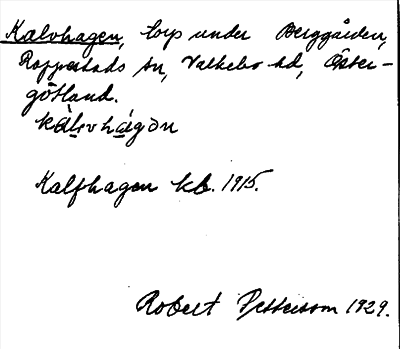 Kalvhagen, torp under Berggården,
Rappestads sn, Valkebo hd, Öster-
götland.
kàlvhágən
Kalfhagen kb. 1915.
Robert Pettersson 1929.